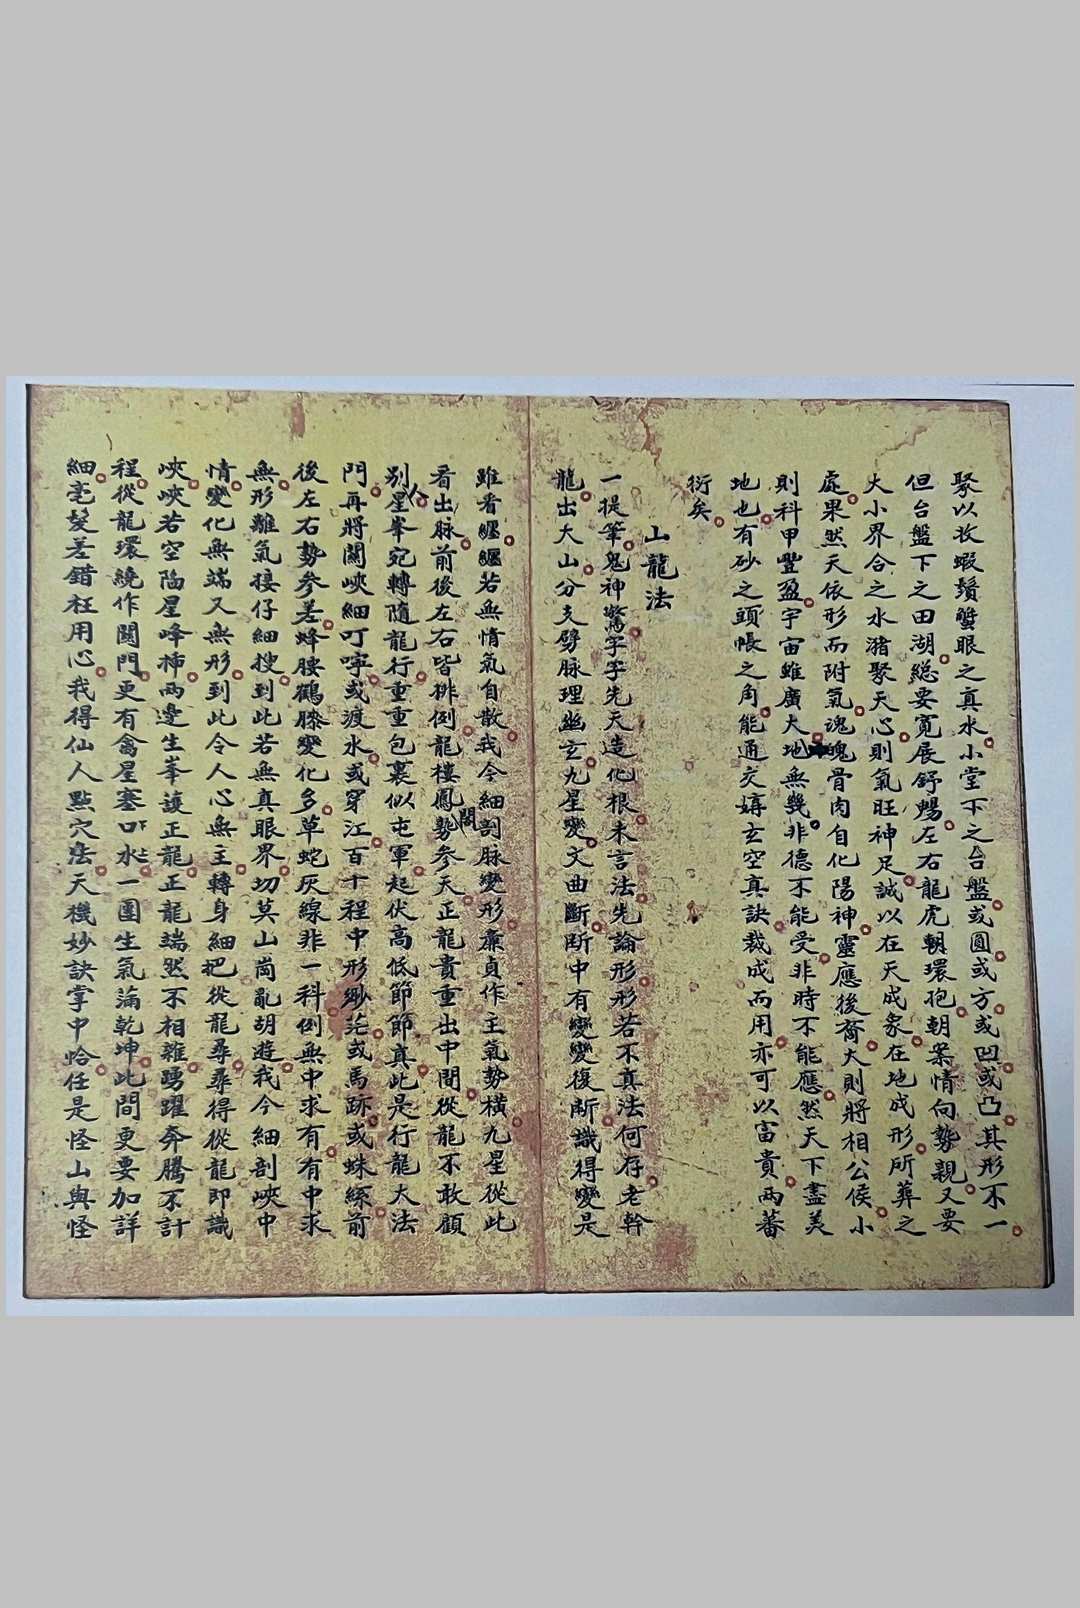 聚以收蝦鬚蟹眼之真水小堂下之台盤或圓或方或凹或凸其形不一
但台盤下之田湖總要寬展舒暢左右龍虎朝環抱朝案情向勢親又要
大小界合之水豬聚天心則氣旺神足誠以在天成象在地成形所葬之
處果然天依形而附氣魂魄骨肉自化陽神靈應後裔大則將相公侯小
則科甲豐盈宇宙雖廣大地無幾非德不能受非時不能應然天下盡美
地也有砂之頭帳之角能通交媾玄空真訣裁成而用亦可以富貴兩蕃
衍矣
山龍法
一提筆鬼神驚字字先天造化根未言法先論形形若不真法何存老幹
龍出大山分支劈脉理幽玄九星變文曲斷斷中有變變復斷識得變是
雖看纏纏若無情氣自散我今細剖脉變形廉貞作主氣勢橫九星從此
看出脉前後左右皆排例龍樓鳳閣勢參天正龍貴重出中間從龍不敢顧
別星峯宛轉隨龍行重重包裹似屯軍起伏高低節節真此是行龍大法
門再將關峽細叮嚀或渡水或穿江百十程中形緲茫或馬跡或蛛絲前
後左右勢參差蜂腰鶴膝變化多草蛇灰線非一科例無中求有有中求
無形難氣接仔細搜到此若無真眼界切莫山崗亂胡遊我今細剖峽中
情變化無端又無形到此令人心無主轉身細把從龍尋尋得從龍即識
峽峽若空陷星峰插兩邊生峯護正龍正龍端然不相雜踴躍奔騰不計
程從龍環繞作關門更有禽星塞口水一團生氣滿乾坤此間更要加詳
細毫髮差錯枉用心我得仙人點穴法天機妙訣掌中恰任是怪山與怪